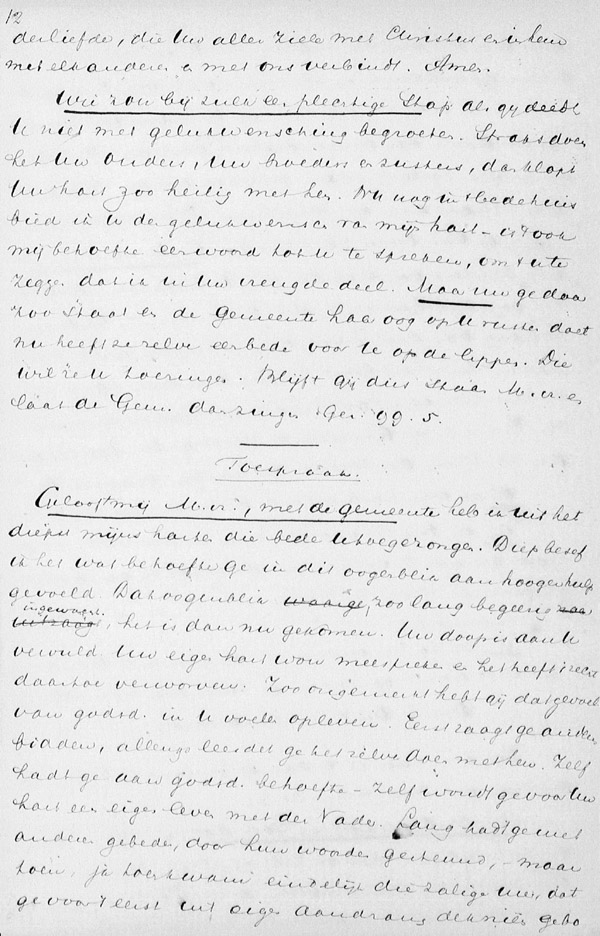 12
der liefde, die Uw aller ziele met Christus en in hem
met elkander en met ons verbindt. Amen.
Wie zou bij zulk een plechtige Stap als gij deedt
U niet met gelukwensching begroeten. Straks doen
het Uw Ouders, Uw broeders en zusters, dan klopt
Uw hart zoo heilig met hen. Nu nog in 't bedehuis
bied ik U de gelukwensen van mijn hart - is 't ook
mij behoefte een woord tot U te spreken, om 't U te
zeggen dat ik in Uw vreugde deel. Maar nu ge daar
zoo Staat en de Gemeente haar oog op U rusten doet
nu heeft ze zelve een bede voor U op de lippen. Die
wil ze U toezingen. Blijft gij dus Staan M. vr. en
laat de Gem. dan zingen Gez. 99. 5.
Toespraak.
Gelooft mij M. vr., met de gemeente heb ik uit het
diepst mijns harten die bede U toegezongen. Diep besef
ik het wat behoefte ge in dit oogenblik aan hooger hulp
gevoeld. Dat oogenblik, zoo lang begeerd
ingewacht
, het is dan nu gekomen. Uw doop is aan U
vervuld. Uw eigen hart wou meespreken en het heeft 't recht
daartoe verworven. Zoo ongemerkt hebt gij dat gevoel
van godsd. in U voelen opleven. Eerst zaagt ge anderen
bidden, allengs leerdet ge het zelve doen met hen. Zelf
hadt ge aan godsd. behoefte - zelf vondt ge voor Uw
hart een eigen leven met den Vader. Lang hadt ge met
anderen gebeden, door hun woorden gesteund, - maar
toen, ja toen kwam eindelijk die zalige ure, dat
ge voor 't eerst uit eigen aandrang de knieën gebo